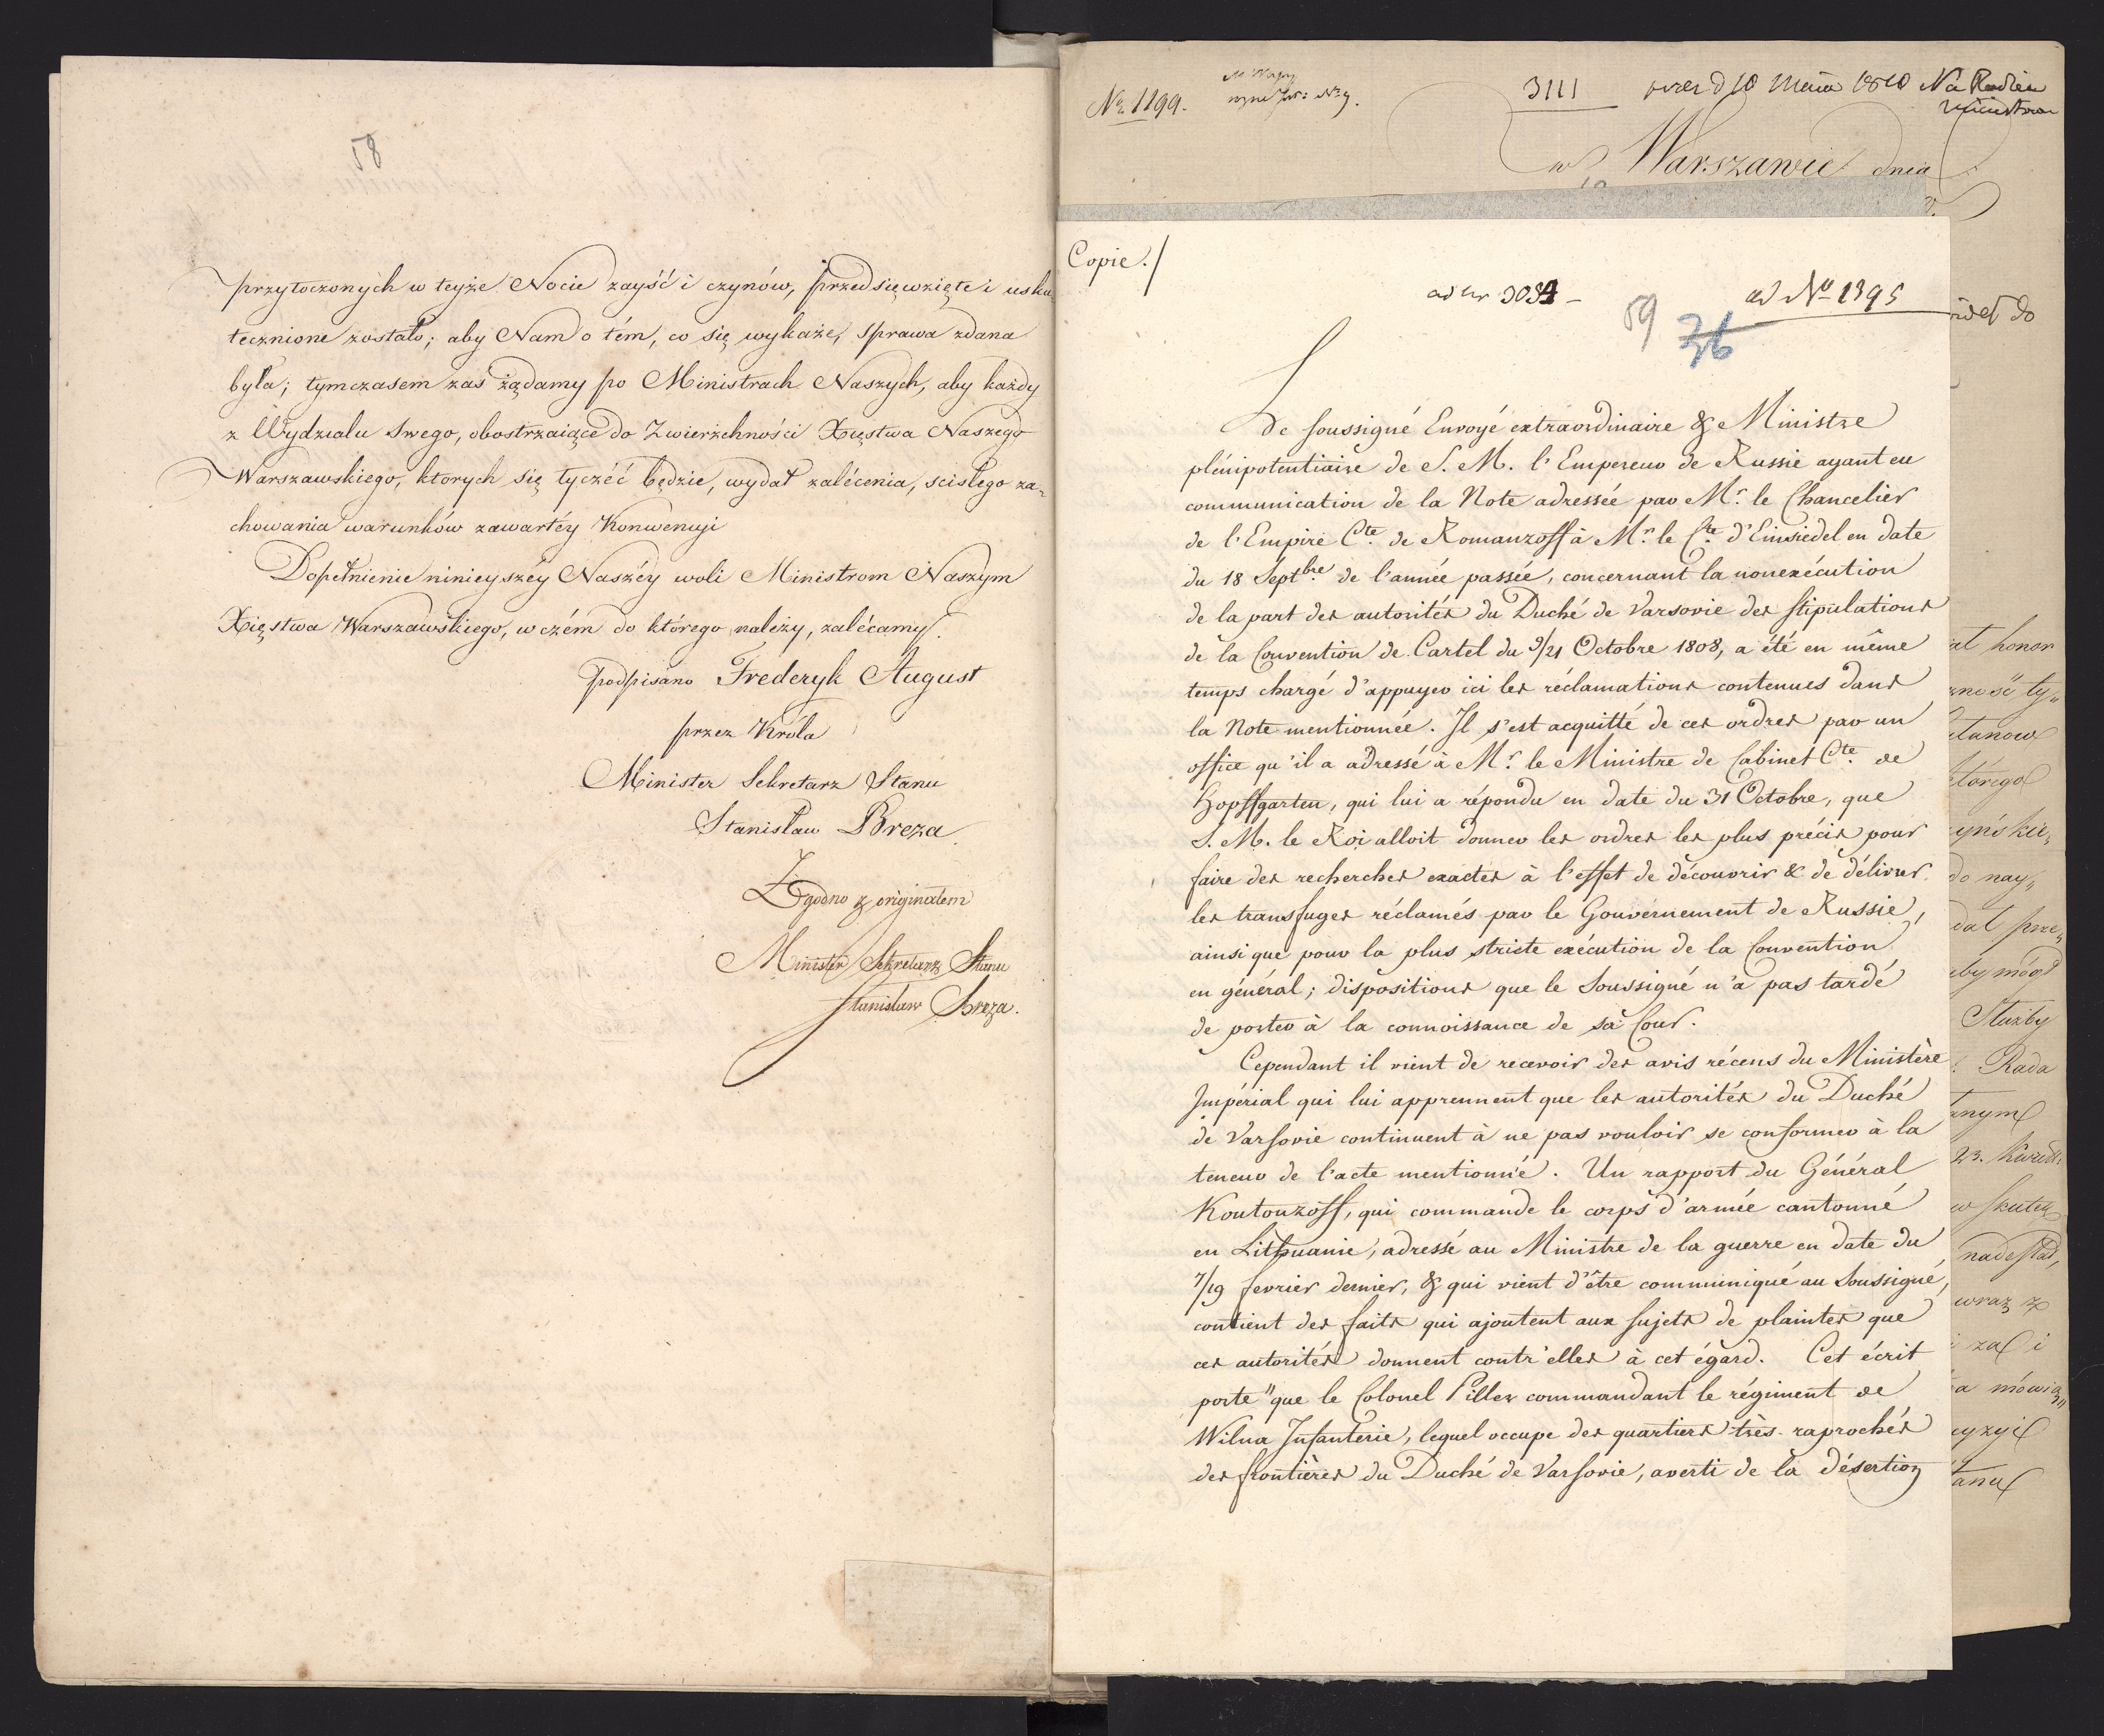 58
przytoczonych w teyże Nocie zayść i czynów, przedsięwzięte i usku
tecznione zostało; aby Nam o tém, co się wykaże, sprawa zdana
była; tymczasem zas żądamy po Ministrach Naszych, aby każdy
z Wydziału Swego, obostrzaiące do Zwierzchności Xięstwa Naszego
Warszawskiego, ktorych się tyczéć będzie, wydał zalécenia, scisłego za-
chowania warunków zawartéy Konwencyi
Dopełnienie ninieyszéy Naszéy woli Ministrom Naszym
Xięstwa Warszawskiego, w czém do którego należy, zalécamy.
podpisano Frederyk August
przez Króla
Minister Sekretarz Stanu
Stanisław Breza.
Zgodno z originałem
Minister Sekretarz Stanu
Stanisław Breza.
No. 1199.
3111
d 10 1810 Na Radzie
w Warszawie dnia
Copie./
ad Nr 3034 -
ad No 1395
59
36
Le soussigné Envoyé extraordinaire & Ministre
plénipotentiaire de S. M. l'Empereur de Russie ayant eu
communication de la Note adressée par Mr. le Chancelier
de l'Empire Cte. de Romanzoff à Mr. le Cte. d'Einsiedel en date
du 18 Septbre. de l'année passée, concernant la nonexécution
de la part des autorités du Duché de Varsovie des stipulations
de la Convention de Cartel du 9/21 Octobre 1808, a été en même
temps chargé d'appuyer ici les réclamations contenues dans
la Note mentionnée. Il s'est acquitté de ces ordres par un
office qu'il a adressé à Mr. le Ministre de Cabinet Cte. de
Hopffgarten, qui lui a répondu en date du 31 Octobre, que
S. M. le Roi alloit donner les ordres les plus précis pour
faire des recherches exactes à l'effet de découvrir & de délivrer
les transfuges réclamés par le Gouvernement de Russie,
ainsi que pour la plus stricte exécution de la Convention
en général; dispositions que le Soussigné n'a pas tardé
de porter à la connoissance de sa Cour.
Cependant il vient de recevoir des avis récens du Ministère
Impérial qui lui apprennent que les autorités du Duché
de Varsovie continuent à ne pas vouloir se conformer à la
teneur de l'acte mentionné. Un rapport du Général
Koutouzoff, qui commande le corps d'armée cantonné
en Lithuanie, adressé au Ministre de la guerre en date du
7/19 fevrier dernier, & qui vient d'être communiqué au Soussigné,
contient des faits qui ajoutent aux sujets de plaintes que
ces autorités donnent contr'elles à cet égard. Cet écrit
porte "que le Colonel Piller commandant le régiment de
Wilna Infanterie, lequel occupe des quartiers très-raprochés
des frontières du Duché de Varsovie, averti de la désertion
do
honor
ność ty„
którego
do nay„
mógł
Służby
Rada
23.
nadesłać,
wraz z
i
mówią„